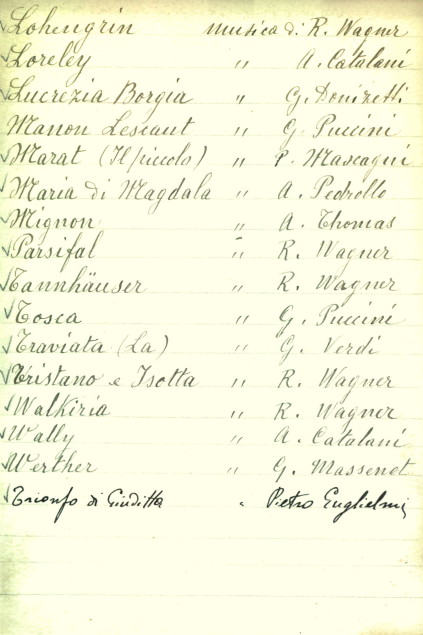 Lohengrin musica di R. Wagner
Loreley " A. Catalani
Lucrezia Borgia " G. Donizetti
Manon Lescaut " G. Puccini
Marat (Il piccolo) " P. Mascagni
Maria di Magdala " A. Pedrollo
Mignon " A. Thomas
Parsifal " R. Wagner
Tannhäuser " R. Wagner
Tosca " G. Puccini
Traviata (La) " G. Verdi
Tristano e Isotta " R. Wagner
Walkiria " R. Wagner
Wally " A. Catalani
Werther " G. Massenet
Trionfo di Giuditta " Pietro Guglielmi